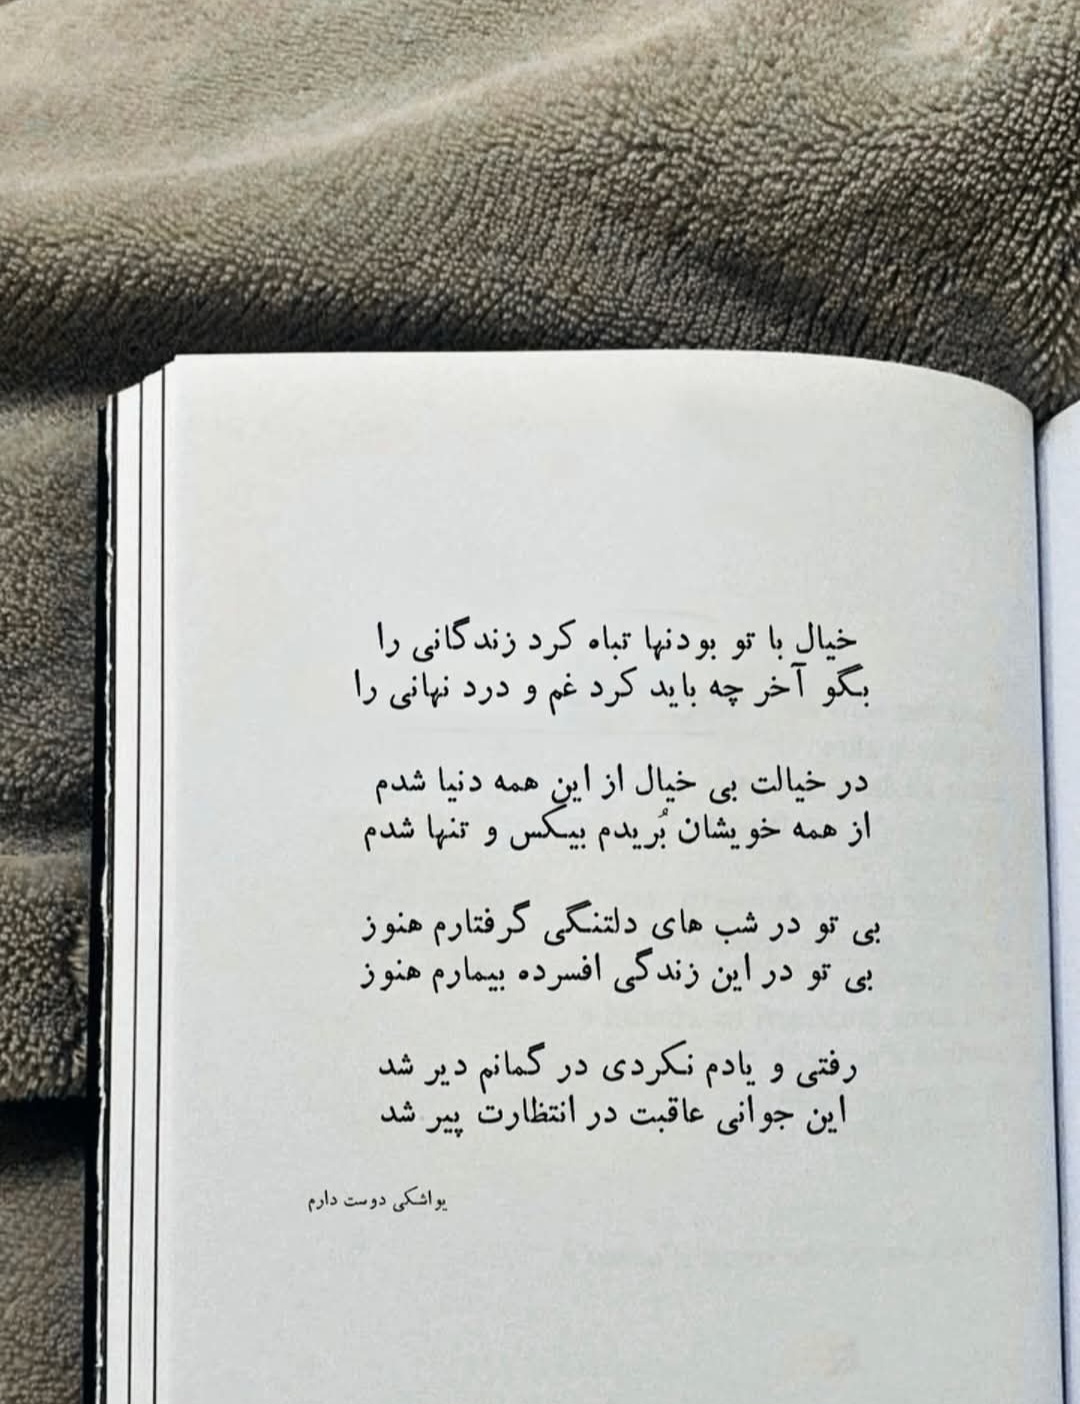 خیال با تو بودنها تباه کرد زندگانی را
بگو آخر چه باید کرد غم و درد نهانی را
در خیالت بی خیال از این همه دنیا شدم
از همه خویشان بُریدم بیکس و تنها شدم
بی تو در شب های دلتنگی گرفتارم هنوز
بی تو در این زندگی افسرده بیمارم هنوز
رفتی و یادم نکردی در گمانم دیر شد
این جوانی عاقبت در انتظارت پیر شد
یواشکی دوست دارم